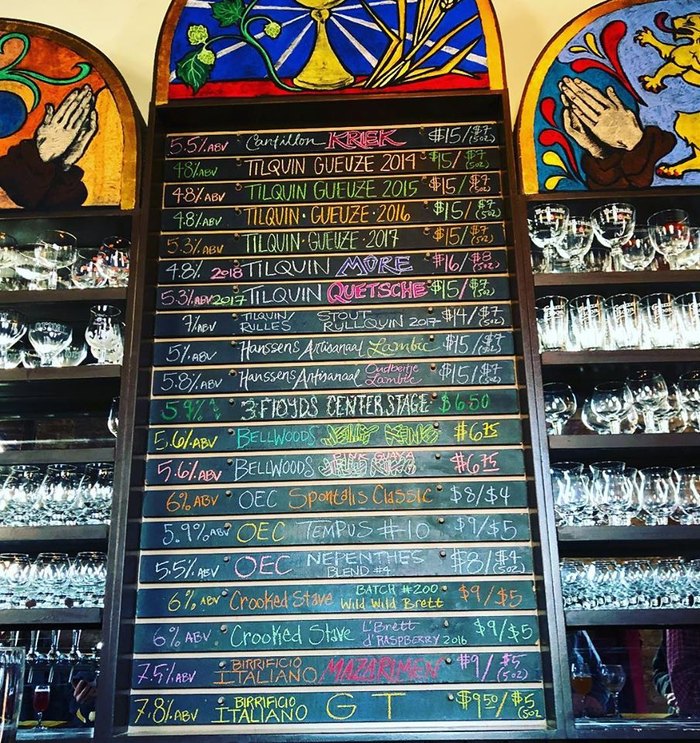 5.5% ABV Cantillon KRIEK $15/$7 (5oz)
4.8% ABV TILQUIN GUEUZE 2014 $15/$7 (5oz)
4.8% ABV TILQUIN GUEUZE 2015 $15/$7 (5oz)
4.8% ABV TILQUIN • GUEUZE • 2016 $15/$7 (5oz)
5.3% ABV TILQUIN • GUEUZE • 2017 $15/$7 (5oz)
4.8% 2018 TILQUIN MÛRE $16/$8 (5oz)
5.3% ABV 2017 TILQUIN QUETSCHE $15/$7 (5oz)
7% ABV TILQUIN/ RULLES STOUT RULLQUIN 2017 $14/$7 (5oz)
5% ABV Hanssens Artisanaal Lambic $15/$7 (5oz)
5.8% ABV Hanssens Artisanaal Oudbeitje Lambic $15/$7 (5oz)
5.4% 3 FLOYDS CENTER STAGE $6.50
5.6% ABV BELLWOODS JELLY KING $6.75
5.6% ABV BELLWOODS PINK GUAVA JELLY KING $6.75
6% ABV OEC Spontalis Classic $8/$4
5.9% ABV OEC TEMPUS #10 $9/$5
5.5% ABV OEC NEPENTHES BLEND #4 $8/$4 (5oz)
6% ABV Crooked Stave BATCH #200 Wild Wild Brett $9/$5
6% ABV Crooked Stave L'Brett d'RASPBERRY 2016 $9/$5
7.5% ABV BIRRIFICIO ITALIANO MAZARIMEN $9/$5 (5oz)
7.8% ABV BIRRIFICIO ITALIANO GT $9.50/$5 (5oz)